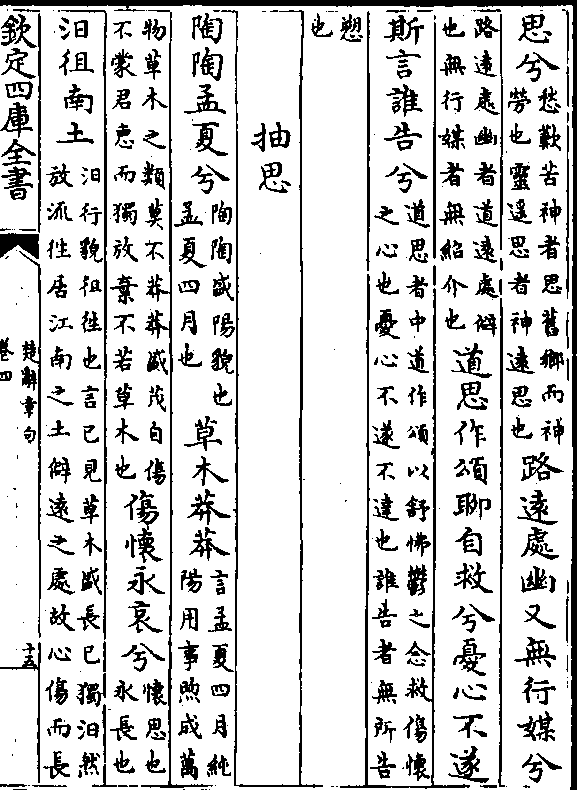 思兮愁歎苦神者思舊鄉而神勞也靈遥思者神遠思也路遠處幽又無行媒兮
路遠處幽者道遠處僻也無行媒者無紹介也道思作頌聊自救兮憂心不遂
斯言誰告兮道思者中道作頌以舒怫鬱之念救傷懷之心也憂心不遂不達也誰告者無所告
愬也
抽思
陶陶孟夏兮陶陶盛陽貌也孟夏四月也草木莽莽言孟夏四月純陽用事煦成萬
物草木之類莫不莽莽盛茂自傷不蒙君惠而獨放棄不若草木也傷懷永哀兮懷思也永長也
汩徂南土汩行貌徂往也言已見草木盛長已獨汩然放流往居江南之土僻遠之處故心傷而長
欽定四庫全書
楚辭章句
卷四
十五